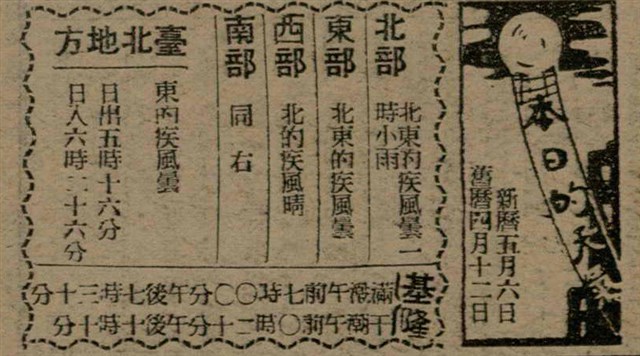 本日的天氣
新曆五月六日
舊曆四月十二日
北部
北東的疾風曇一
時小雨
東部
北東的疾風曇
西部
北的疾風晴
南部
同右
臺北地方
東的疾風曇
日出五時十六分
日入六時二十六分
基隆
滿潮午前七時〇〇分午後七時三十分
干潮午前〇時二十分午後十時十分